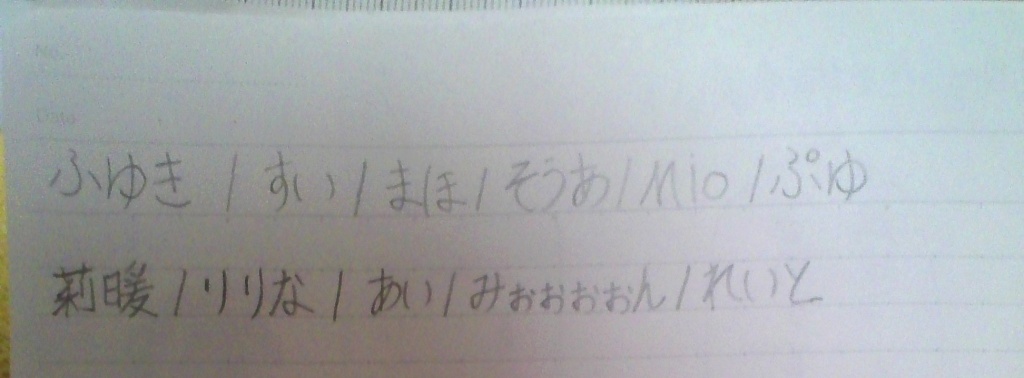 No.
Date
ふゆき / すい / まほ / そうあ / Mio / ぷゆ
莉暖 / りりな / あい / みぉぉぉぉん / れいと